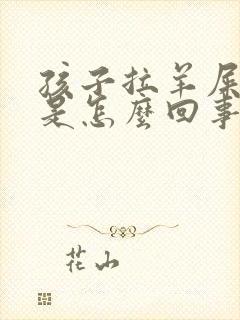 孩子拉羊屎
是怎麼回事
花山